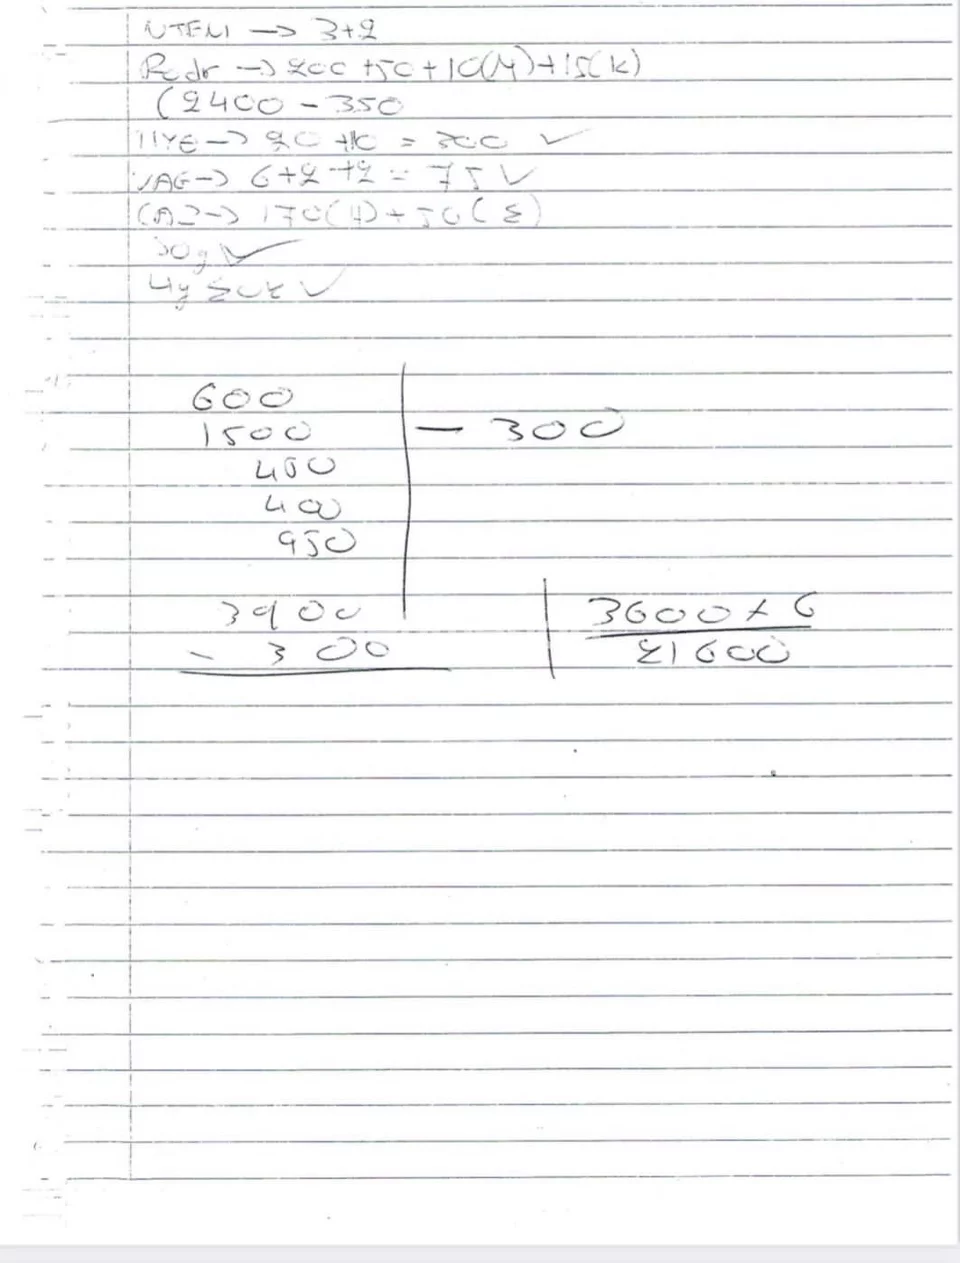 NTENI → 3+2
Rodr → 200 +50+10(Y)+15(k)
(2400 - 350
→ 20 +10 = 300 ✓
VAG → 6+2+2 = 75 ✓
→ 170(4)+50(Σ)
30g ✓
4y ✓
600
1500 - 300
450
400
950
3900 3600 x 6
- 300 21600